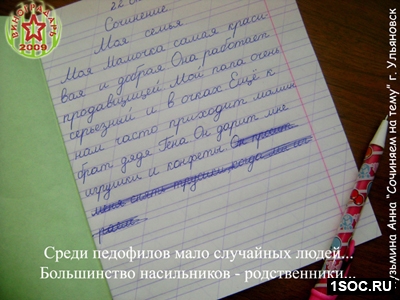 ВИНОГРАДАРЬ
2009
22 ок
Сочинение
Моя семья
Моя Мамочка самая краси-
вая и добрая Она работает
продавщицей Мой папа очень
серьезний и в очках Ещё к
нам часто приходит мамин
брат дядя Гена Он дарит мне
игрушки и конфеты Он просит
меня снять трусики когда
Среди педофилов мало случайных людей...
Большинство насильников - родственники...
узьмина Анна "Сочиняем на тему" г. Ульяновск
1SOC.RU